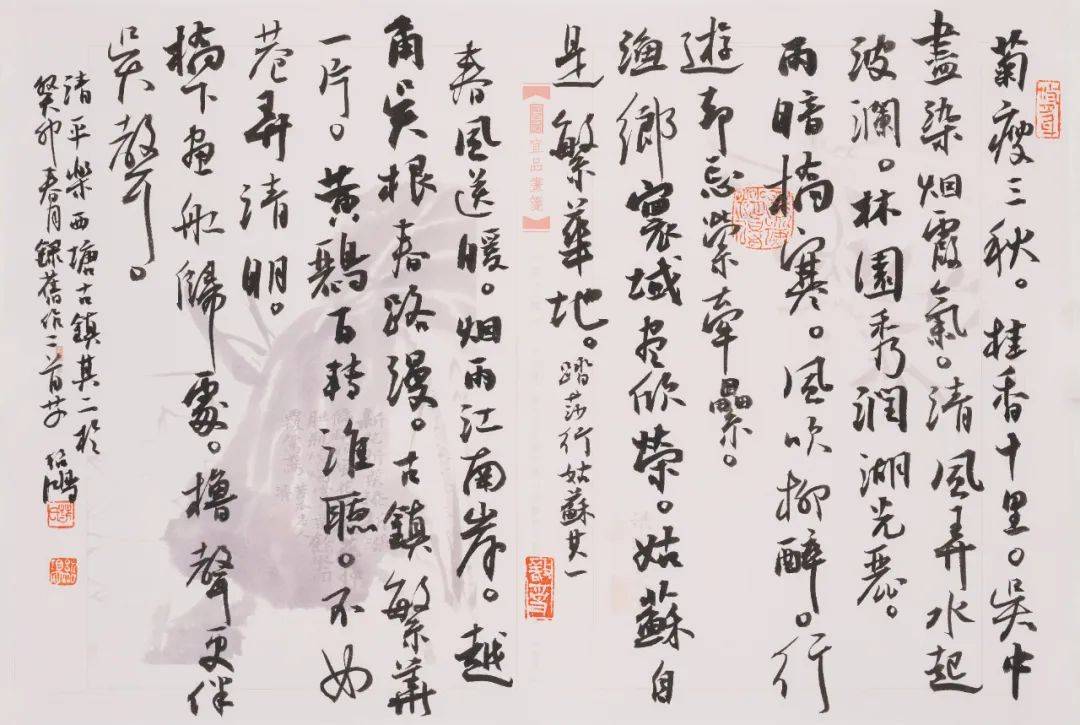 菊瘦三秋。桂香十里。吳中
盡染烟霞氣。清風弄水起
波瀾。林園秀潤湖光麗。
雨暗橋寒。風吹柳醉。行
遊却忘縈牽纍。
漁鄉寰域尽欣榮。姑蘇自
是繁華地。踏莎行姑蘇其一
宜品書箋
春風送暖。烟雨江南岸。越
角吳根春路漫。古鎮繁華
一片。黄鸝百转誰聽。不如
巷弄清明。
橋下画船歸處。櫓聲更伴
吳聲。
清平樂西塘古鎮其二於
癸卯春月錄舊作二首